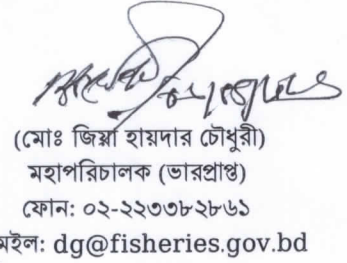 (মোঃ জিয়া হায়দার চৌধুরী)
মহাপরিচালক (ভারপ্রাপ্ত)
ফোন: ০২-২২৩৩৮২৮৬১
মেইল: dg@fisheries.gov.bd